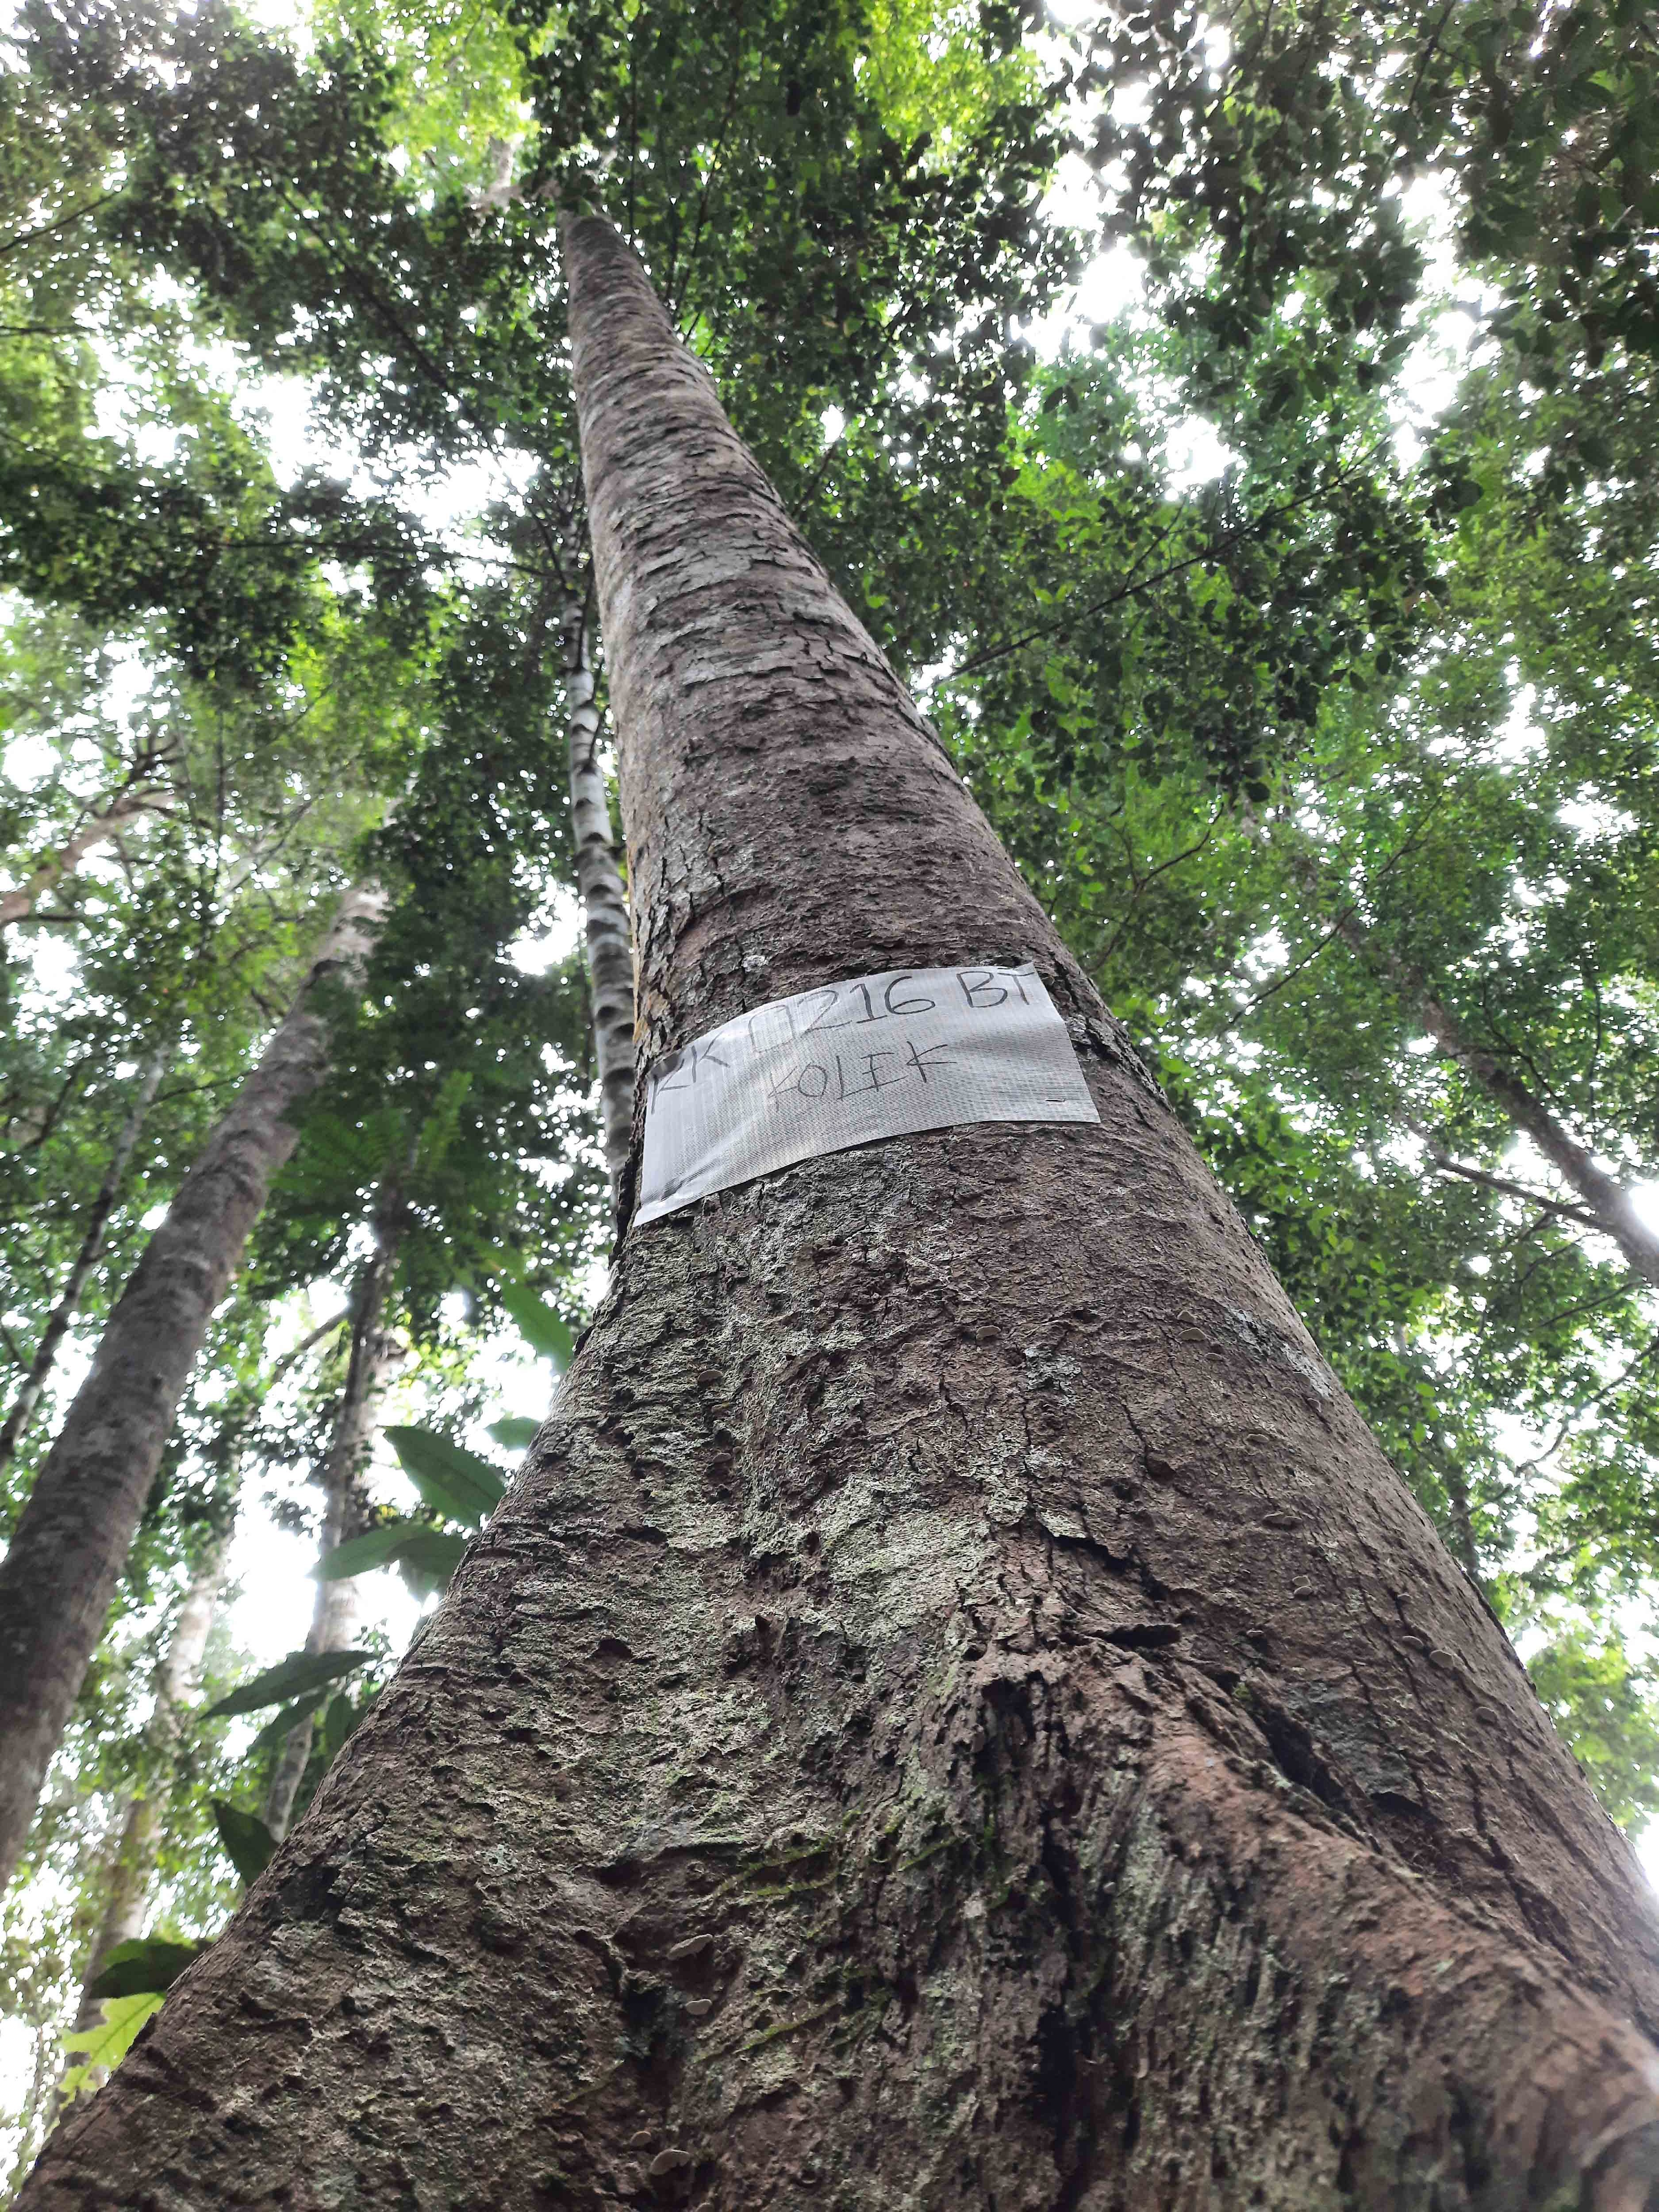 KK 0216 BT
KOLEK